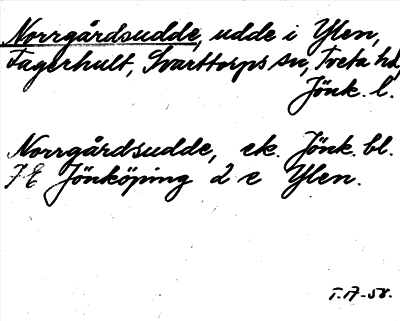 Norrgårdsudde, udde i Ylen,
Fagerhult, Svarttorps sn, Tveta hd,
Jönk. l.
Norrgårdsudde, ek. Jönk. bl.
7E Jönköping 2 e Ylen.
T. 17-58.